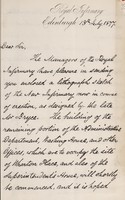 Royal Infirmary
Edinburgh 13th July 1877.
Dear Sir,
The Managers of the Royal
Infirmary have pleasure in sending
you enclosed a lithograph sketch
of the New Infirmary now in course
of erection, as designed by the late
Mr Bryce. The building of the
remaining portion of the Administrative
Department, Washing House, and other
Offices, which are to occupy the site
of Wharton Place, and also of the
Superintendent's House, will shortly
be commenced, and it is hoped